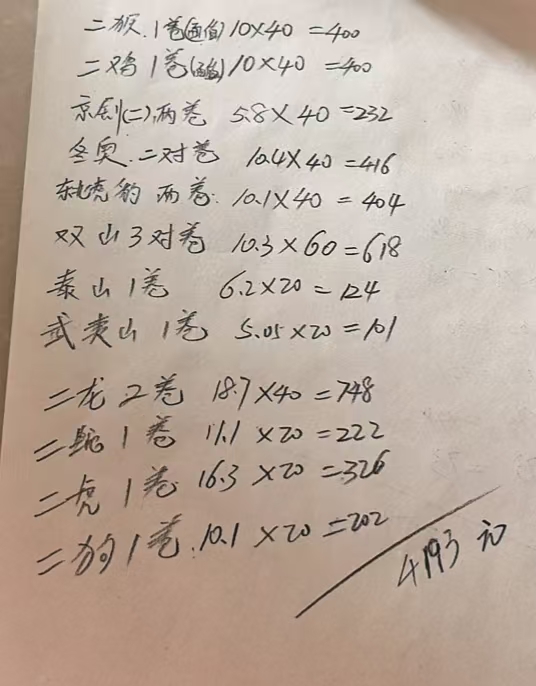 二猴.1卷(面值)10×40=400
二鸡1卷(面值)10×40=400
京剧(二)两卷 5.8×40=232
冬奥.二对卷 10.4×40=416
东北虎豹两卷.10.1×40=404
双山3对卷 10.3×60=618
泰山1卷 6.2×20=124
武夷山1卷 5.05×20=101
二龙2卷 18.7×40=748
二1卷 11.1×20=222
二虎1卷 16.3×20=326
二狗1卷.10.1×20=202
4193元